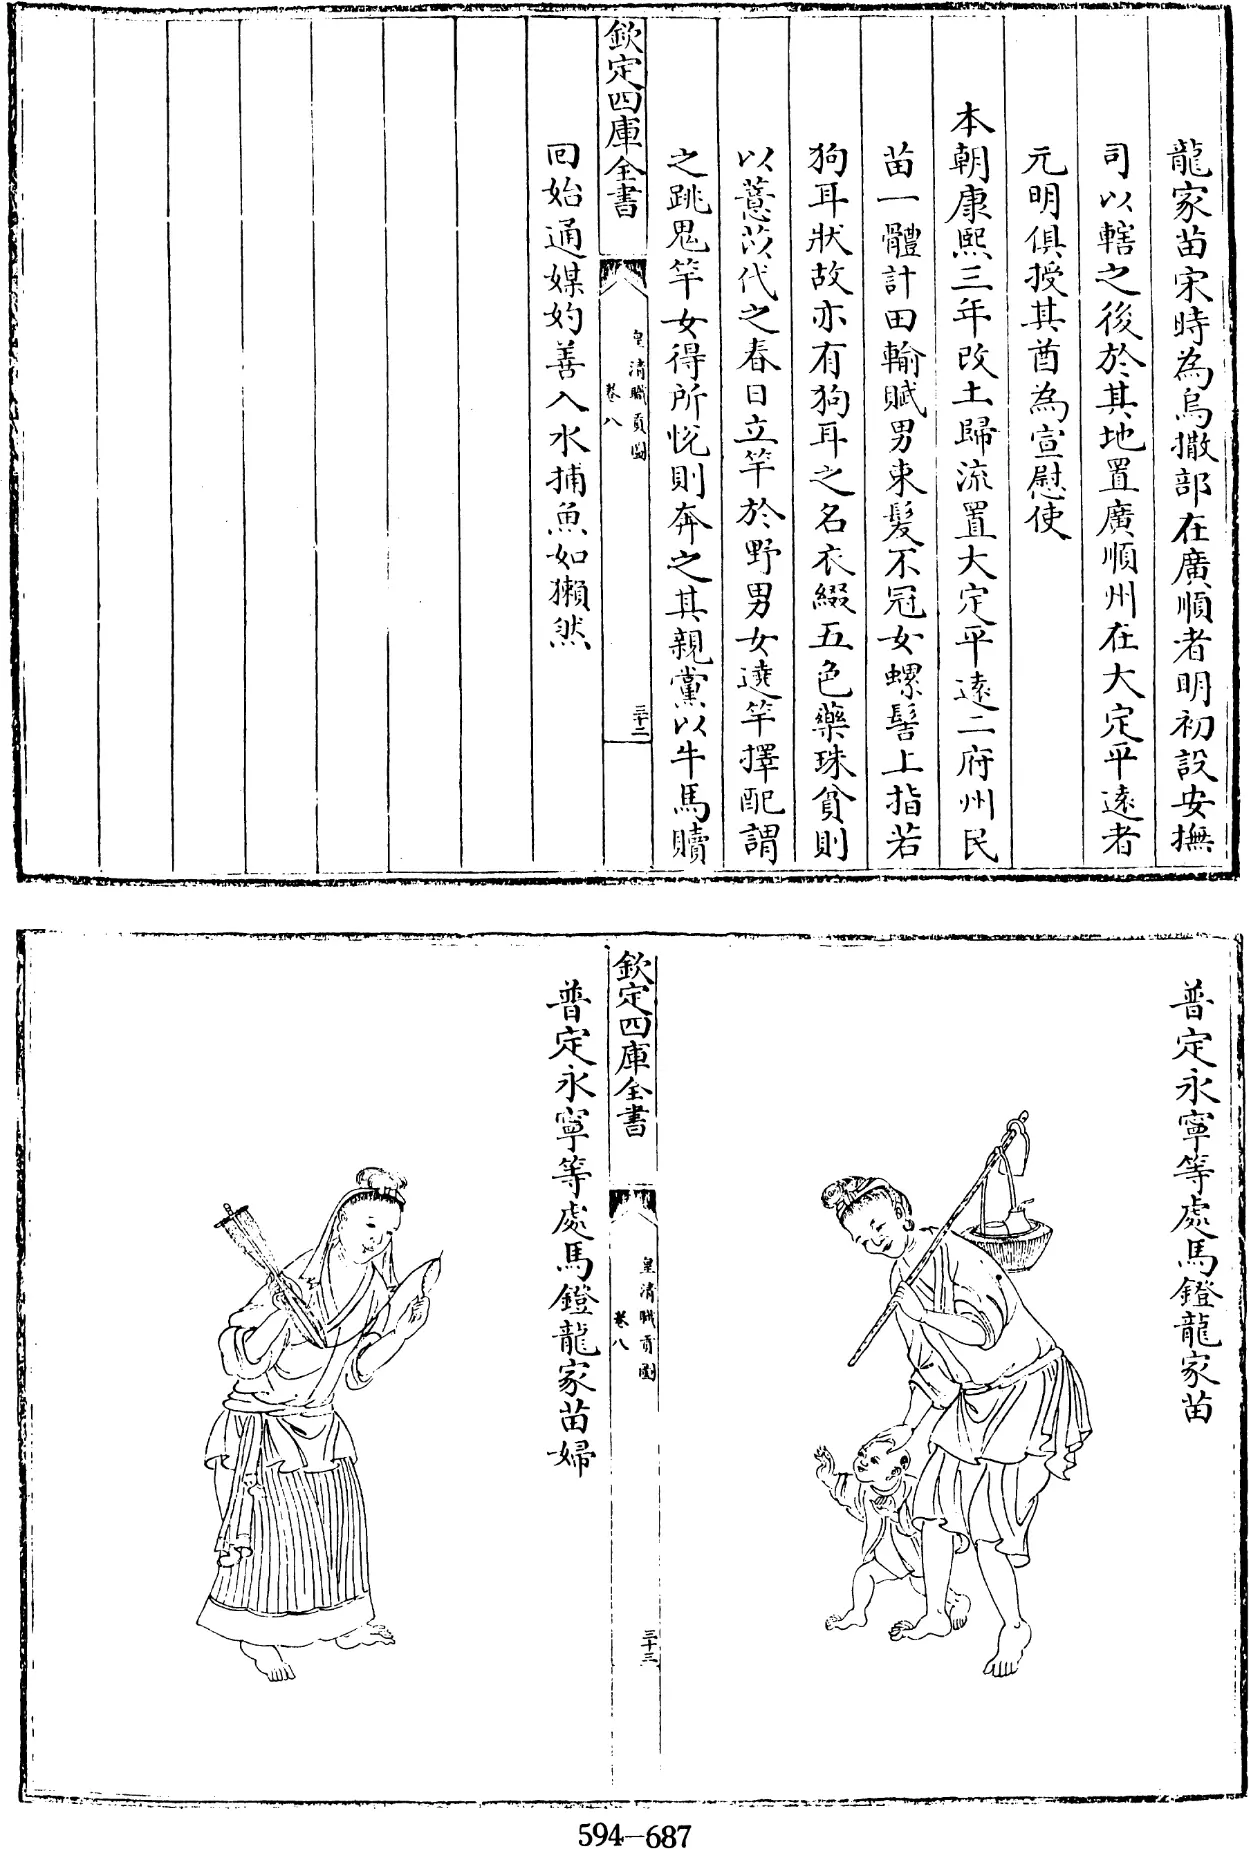 龍家苗宋時為烏撒部在廣順者明初設安撫
司以轄之後於其地置廣順州在大定平遠者
元明俱授其酋為宣慰使
本朝康熙三年改土歸流置大定平遠二府州民
苗一體計田輸賦男束髮不冠女螺髻上指若
狗耳狀故亦有狗耳之名衣綴五色藥珠貧則
以薏苡代之春日立竿於野男女遶竿擇配謂
之跳鬼竿女得所悅則奔之其親黨以牛馬贖
欽定四庫全書
皇清職貢圖
卷八
三十二
回始通媒妁善入水捕魚如獺然
普定永寧等處馬鐙龍家苗
欽定四庫全書
皇清職貢圖
卷八
三十三
普定永寧等處馬鐙龍家苗婦
594—687